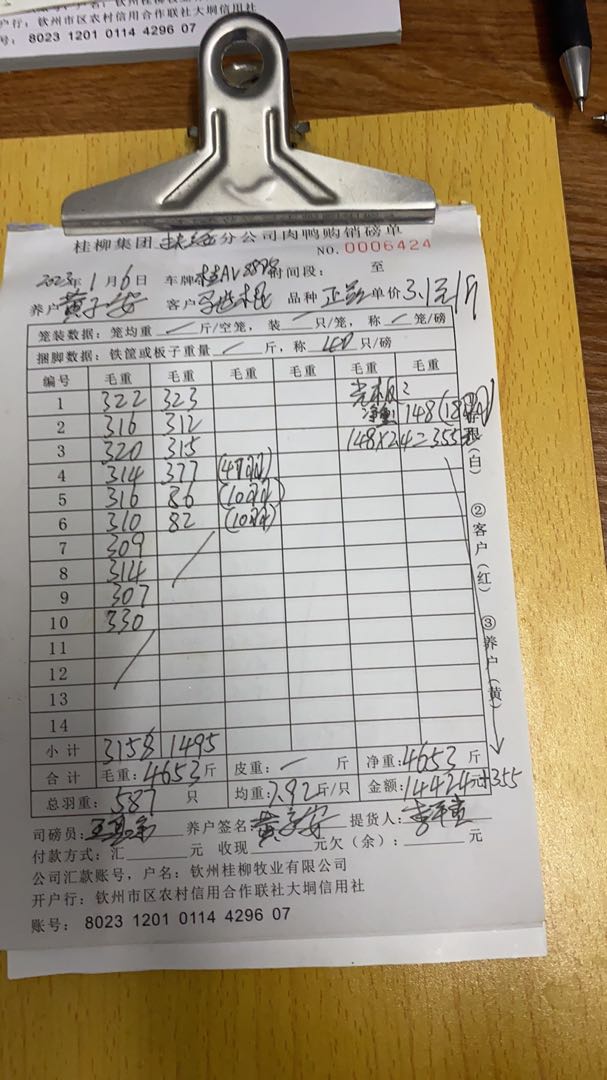 开户行：钦州市区农村信用合作联社大垌信用社
8023 1201 0114 4296 07
桂柳集团 分公司肉鸭购销磅单
NO.0006424
2023年1月6日 车牌 时间段： 至
养户 黄子安 客户 品种 单价 3.1元/斤
笼装数据：笼均重 / 斤/空笼，装 / 只/笼，称 / 笼/磅
捆脚数据：铁筐或板子重量 / 斤，称 40 只/磅
编号 毛重 毛重 毛重 毛重 毛重 毛重
1 322 323
2 316 312 148
3 320 315 148×2.4=355元
4 314 377
5 316 86
6 310 82
7 309 /
8 314
9 307
10 330
11
12 /
13
14
（白）
②客户（红）
③养户（黄）
小计 3158 1495
合计 毛重：4653斤 皮重：/ 斤 净重：4653斤
总羽重：587 只 均重：7.92斤/只 金额：14424元+355
司磅员： 养户签名：黄子安 提货人：
付款方式：汇 元 收现 元欠（余）： 元
公司汇款账号，户名：钦州桂柳牧业有限公司
开户行：钦州市区农村信用合作联社大垌信用社
账号：8023 1201 0114 4296 07